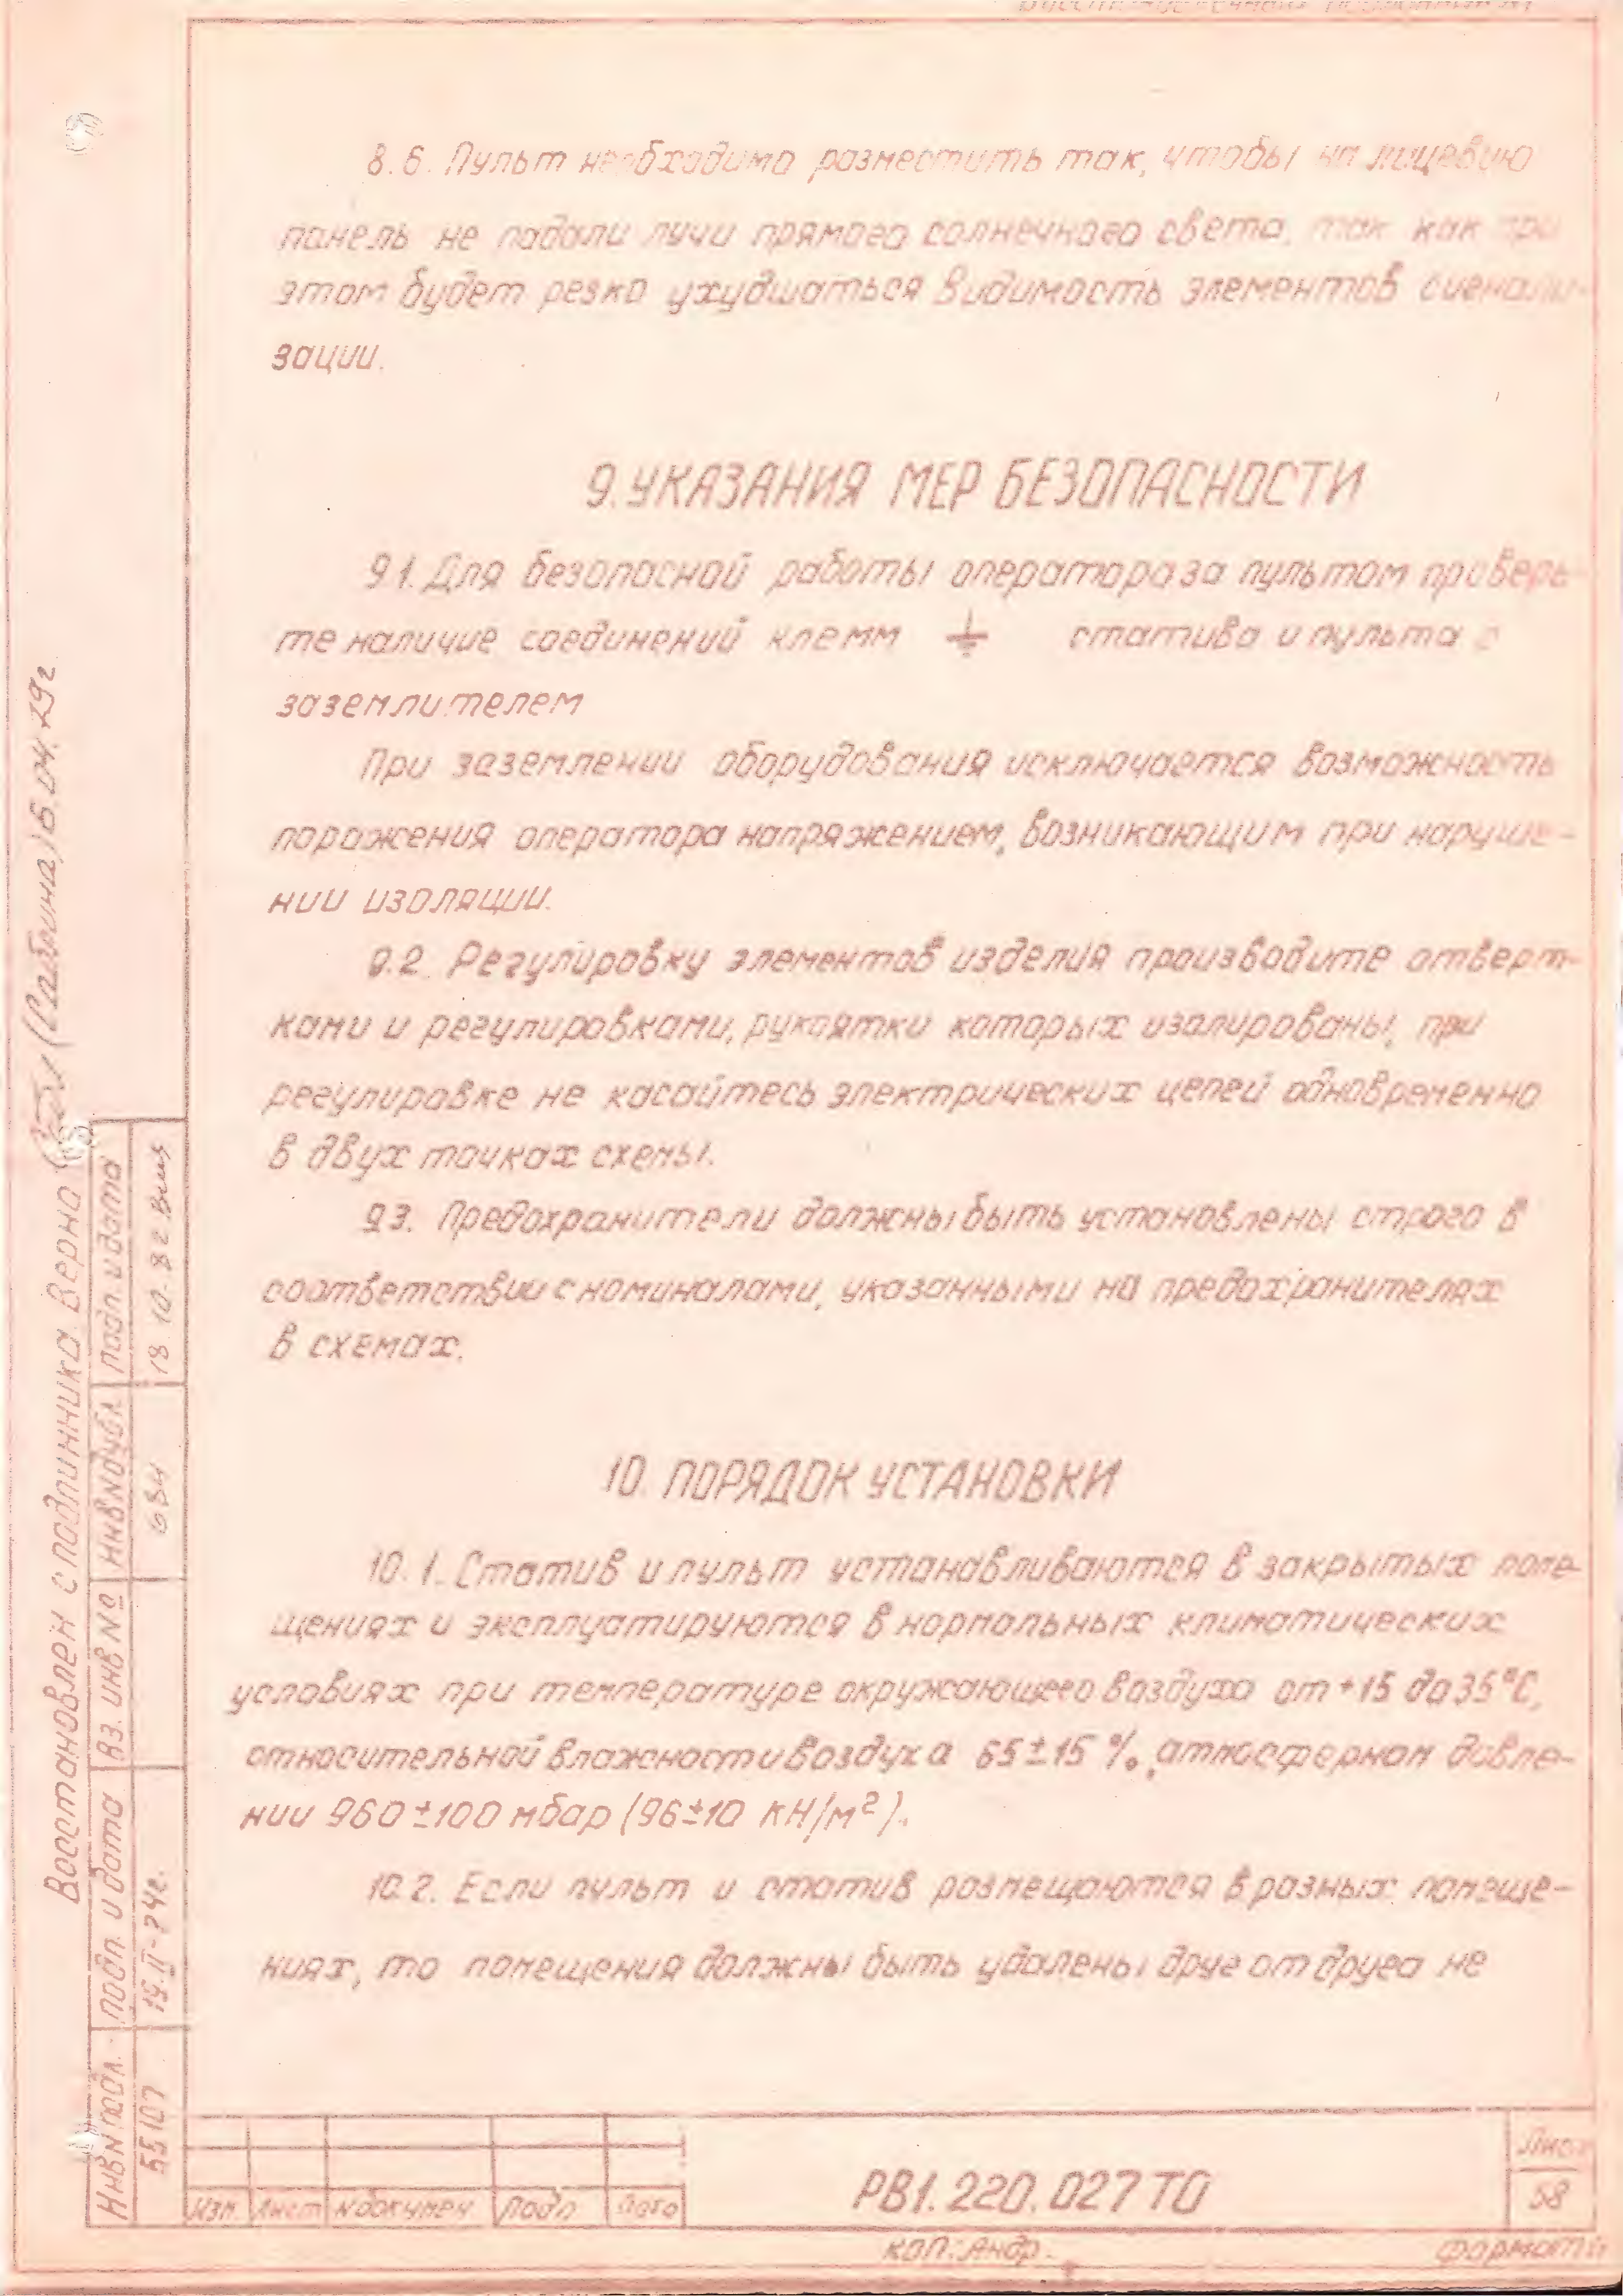 8.6. Пульт необходимо разместить так, чтобы на лицевую
панель не падали лучи прямого солнечного света, так как при
этом будет резко ухудшаться видимость элементов сигнали-
зации.
9. УКАЗАНИЯ МЕР БЕЗОПАСНОСТИ
9.1. Для безопасной работы оператора за пультом проверь-
те наличие соединений клемм ⏚ статива и пульта с
заземлителем
При заземлении оборудования исключается возможность
поражения оператора напряжением, возникающим при наруше-
нии изоляции.
9.2. Регулировку элементов изделия производите отверт-
ками и регулировками, рукоятки которых изолированы, при
регулировке не касайтесь электрических цепей одновременно
в двух точках схемы.
9.3. Предохранители должны быть установлены строго в
соответствии с номиналами, указанными на предохранителях
в схемах.
10. ПОРЯДОК УСТАНОВКИ
10.1. Статив и пульт устанавливаются в закрытых поме-
щениях и эксплуатируются в нормальных климатических
условиях при температуре окружающего воздуха от +15 до 35°С,
относительной влажности воздуха 65±15 %, атмосферном давле-
нии 960±100 мбар (96±10 КН/м²).
10.2. Если пульт и статив размещаются в разных помеще-
ниях, то помещения должны быть удалены друг от друга не
Восстановлен с подлинника. Верно
Инв N подл. подп. и дата Вз. инв № Инв N дубл. подп. и дата
55107 19.II-74г. 684 18.10.82
Изм Лист N докумен Подп Дата
РВ1.220.027 ТО
Лист
58
коп: Андр.
Формат